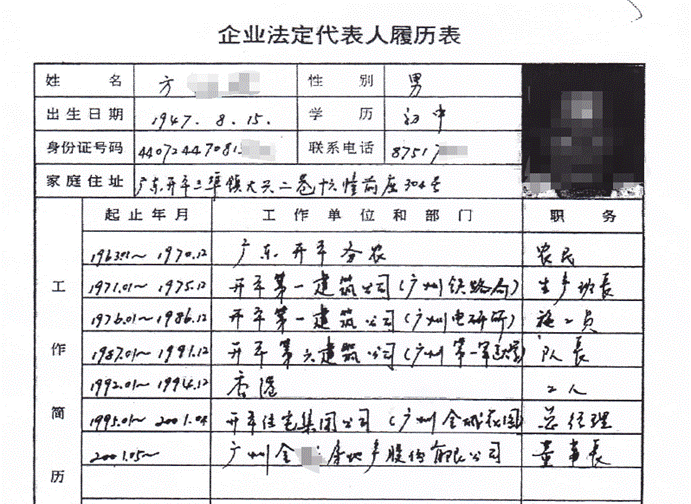 企业法定代表人履历表
姓 名 方 性 别 男
出生日期 1947. 8. 15. 学 历 初中
身份证号码 44072447081 联系电话 87517
家庭住址 广东开平三埠镇大兴二巷 前座304号
起止年月 工作单位和部门 职 务
1963.01~1970.12 广东开平务农 农民
工 1971.01~1975.12 开平第一建筑公司(广州铁路局) 生产班长
1976.01~1986.12 开平第一建筑公司(广州电研所) 施工员
作 1987.01~1991.12 开平第六建筑公司(广州第一军医大学) 队长
1992.01~1994.12 香港 工人
简 1995.01~2001.04 开平住宅集团公司(广州金城花园) 总经理
2001.05~ 广州金 房地产股份有限公司 董事长
历